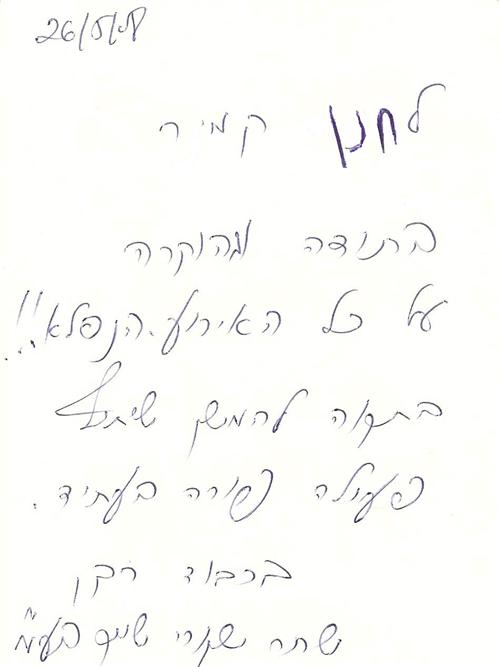 26/5/08
לחנן קמיר
בתודה ובהוקרה
על כל האירוע הנפלא!!
בתקוה להמשך שיתוף
פעולה פורה בעתיד.
בכבוד רב,
בע"מ